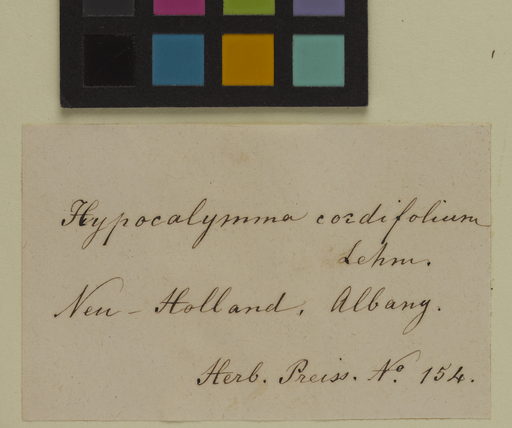 Hypocalymma cordifolium
Lehm.
Neu-Holland, Albany.
Herb. Preiss. No. 154.